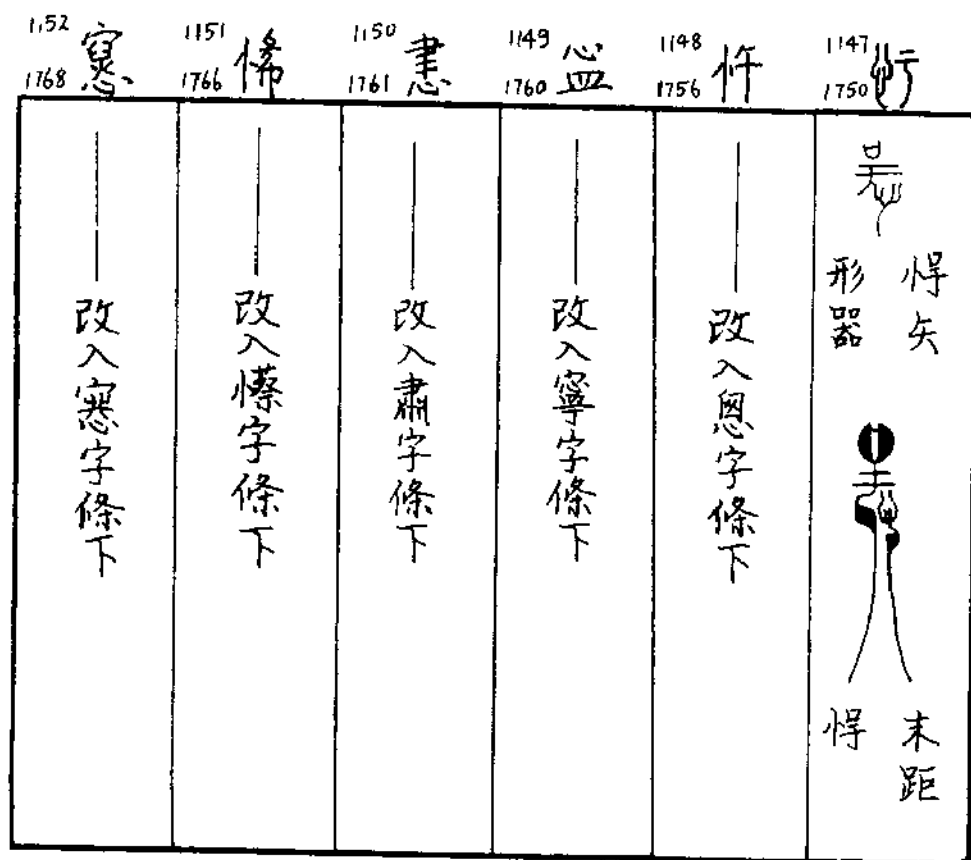 1147
1750
悍矢
形器
末距
悍
1148
1756
忤
改入恩字條下
1149
1760
改入寧字條下
1150
1761
改入肅字條下
1151
1766
悕
改入字條下
1152
1768
改入字條下